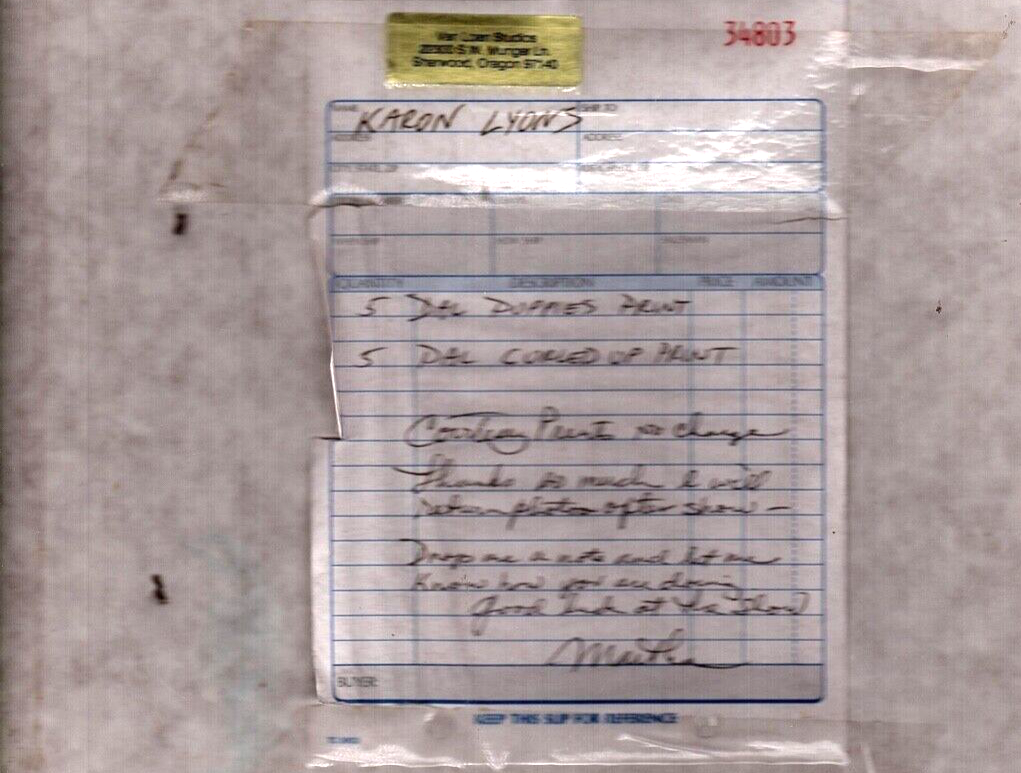 34803
Van Loan Studios
S.W. Munger Ln.
Sherwood, Oregon 97140
NAME
SHIP TO
KARON LYONS
ADDRESS
ADDRESS
QUANTITY DESCRIPTION PRICE AMOUNT
5 DAL PUPPIES PRINT
5 DAL CURLED UP PRINT
Print no charge
Thanks so much I will
return photos after show —
Drop me a note and let me
know how you are doing
good luck at the show
Martha
BUYER:
KEEP THIS SLIP FOR REFERENCE